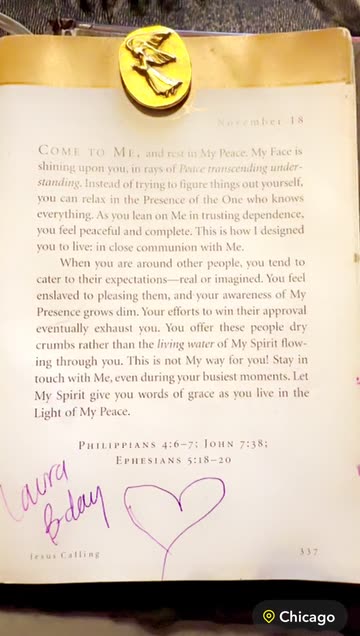 November 18
COME TO ME, and rest in My Peace. My Face is
shining upon you, in rays of Peace transcending under-
standing. Instead of trying to figure things out yourself,
you can relax in the Presence of the One who knows
everything. As you lean on Me in trusting dependence,
you feel peaceful and complete. This is how I designed
you to live: in close communion with Me.
When you are around other people, you tend to
cater to their expectations—real or imagined. You feel
enslaved to pleasing them, and your awareness of My
Presence grows dim. Your efforts to win their approval
eventually exhaust you. You offer these people dry
crumbs rather than the living water of My Spirit flow-
ing through you. This is not My way for you! Stay in
touch with Me, even during your busiest moments. Let
My Spirit give you words of grace as you live in the
Light of My Peace.
PHILIPPIANS 4:6–7; JOHN 7:38;
EPHESIANS 5:18–20
Laura
Bday
Jesus Calling
337
Chicago